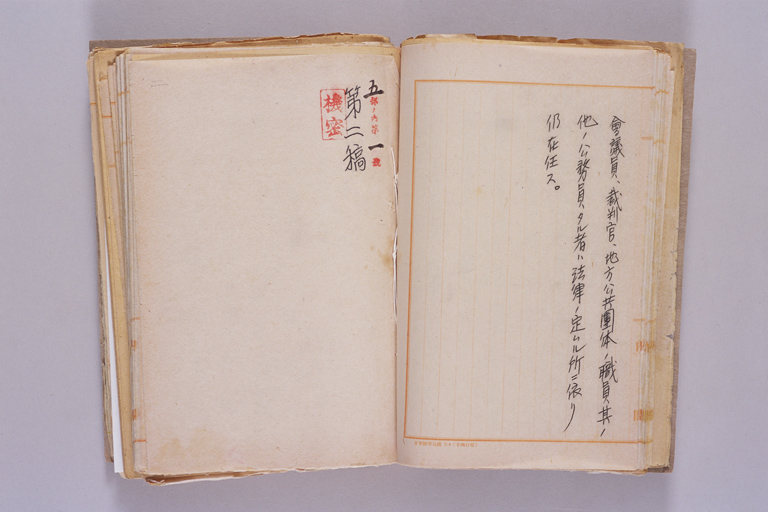 會議員、裁判官、地方公共團体ノ職員其ノ
他ノ公務員タル者ハ法律ノ定ムル所ニ依リ
仍在任ス。
五部ノ内第一號
第二稿
機密